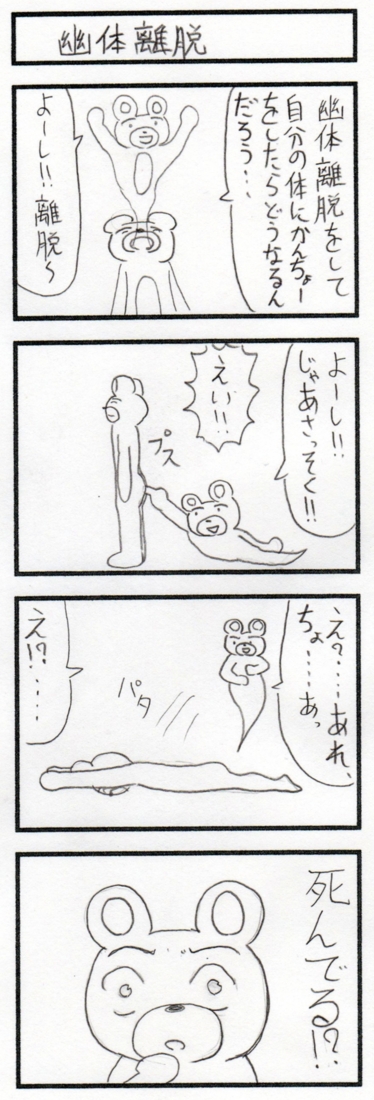 幽体離脱
幽体離脱をして
自分の体にかんちょー
をしたらどうなるん
だろう・・・
よーし!!離脱〜
よーし!!
じゃあさっそく!!
えい!!
プス
え?・・・・あれ、
ちょ・・・・あっ
パタ
え!?・・・・
死んでる!?